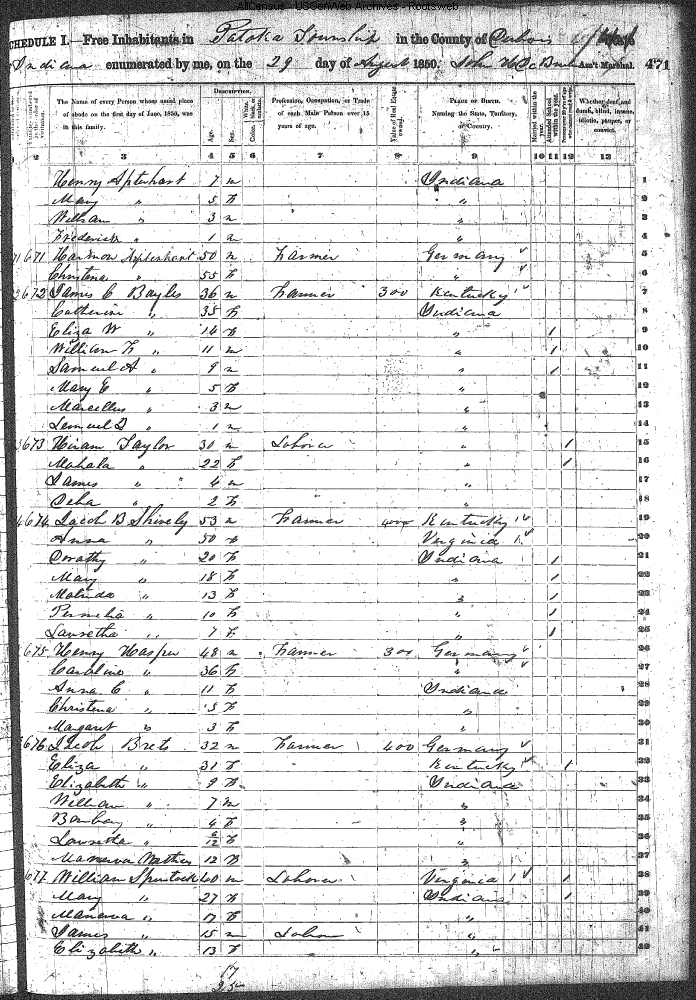 AllCensus - USGenWeb Archives - Rootsweb
SCHEDULE I.—Free Inhabitants in Patoka Township in the County of Dubois
Indiana enumerated by me, on the 29 day of August 1850. John Ass't Marshal. 471
Description.
The Name of every Person whose usual place of abode on the first day of June, 1850, was in this family.
Age. Sex. Color
Profession, Occupation, or Trade of each Male Person over 15 years of age.
Value of Real Estate owned.
Place of Birth. Naming the State, Territory, or Country.
Married within the year.
Attended School within the year.
Whether deaf and dumb, blind, insane, idiotic, pauper, or convict.
2 3 4 5 6 7 8 9 10 11 12 13
Henry 7 m Indiana 1
Mary " 5 f " 2
William " 3 m " 3
Frederick " 1 m " 4
671 Harmon 50 m Farmer Germany 5
Christena " 55 f " 6
672 James C Bayles 36 m Farmer 300 Kentucky 7
Catherine " 35 f Indiana 8
Eliza W " 14 f " 1 9
William F " 11 m " 1 10
Samuel A " 9 m " 1 11
Mary E " 5 f " 12
Marcellus " 3 m " 13
Lemuel D " 1 m " 14
673 Hiram Taylor 30 m Labover " 1 15
Mahala " 22 f " 1 16
James " 4 m " 17
" 2 f " 18
674 Jacob B Shively 53 m Farmer 400 Kentucky 19
Anna " 50 f Virginia 20
Dorathy " 20 f Indiana 1 21
Mary " 18 f " 1 22
Malinda " 13 f " 1 23
Permelia " 10 f " 1 24
Lauretha " 7 f " 1 25
675 Henry Hasper 48 m Farmer 300 Germany 26
Caroline " 36 f " 27
Anna C " 11 f Indiana 28
Christena " 5 f " 29
Margaret " 3 f " 30
676 Jacob Brets 32 m Farmer 400 Germany 31
Eliza " 31 f Kentucky 1 32
Elizabeth " 9 f Indiana 33
William " 7 m " 34
" 4 f " 35
Lauretha " 6/12 f " 36
Manerva 12 f " 37
677 William 60 m Labover Virginia 1 38
Mary " 27 f Indiana 1 39
Manerva " 17 f " 40
James " 15 m Labover " 41
Elizabeth " 13 f " 42
17
25